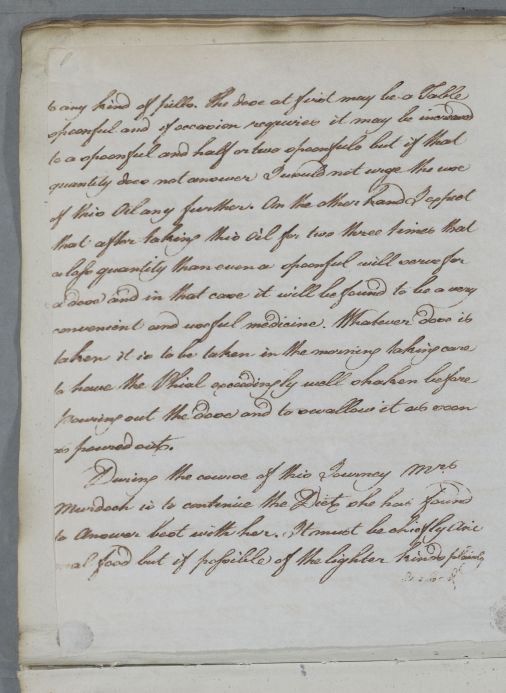 to any kind of pills. The dose at first may be a Table
spoonful and if occasion requires it may be increased
to a spoonful and half or two spoonfuls but if that
quantity does not answer I would not urge the use
of this Oil any further. On the other hand I expect
that after taking this Oil for two three times that
a less quantity than even a spoonful will serve for
a dose and in that case it will be found to be a very
convenient and useful medicine. Whatever dose is
taken it is to be taken in the morning taking care
to have the Phial exceedingly well shaken before
pouring out the dose and to swallow it as soon
as poured out.
During the course of this Journey Mrs
Murdoch is to contenue the Diet she has found
to answer best with her. It must be chiefly Ani
mal food but if possible of the lighter kinds plainly